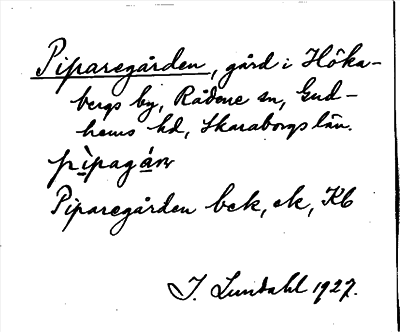 Piparegården, gård i Höka-
bergs by, Rådene sn, Gud-
hems hd, Skaraborgs län.
pìpagáɳ
Piparegården bek, ek, Kb
I. Lundahl 1927.